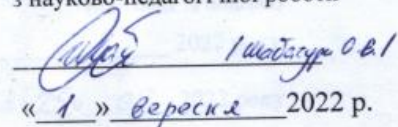 з науково-педагогічної роботи
/ Шабасура О.В./
« 1 » вересня 2022 р.